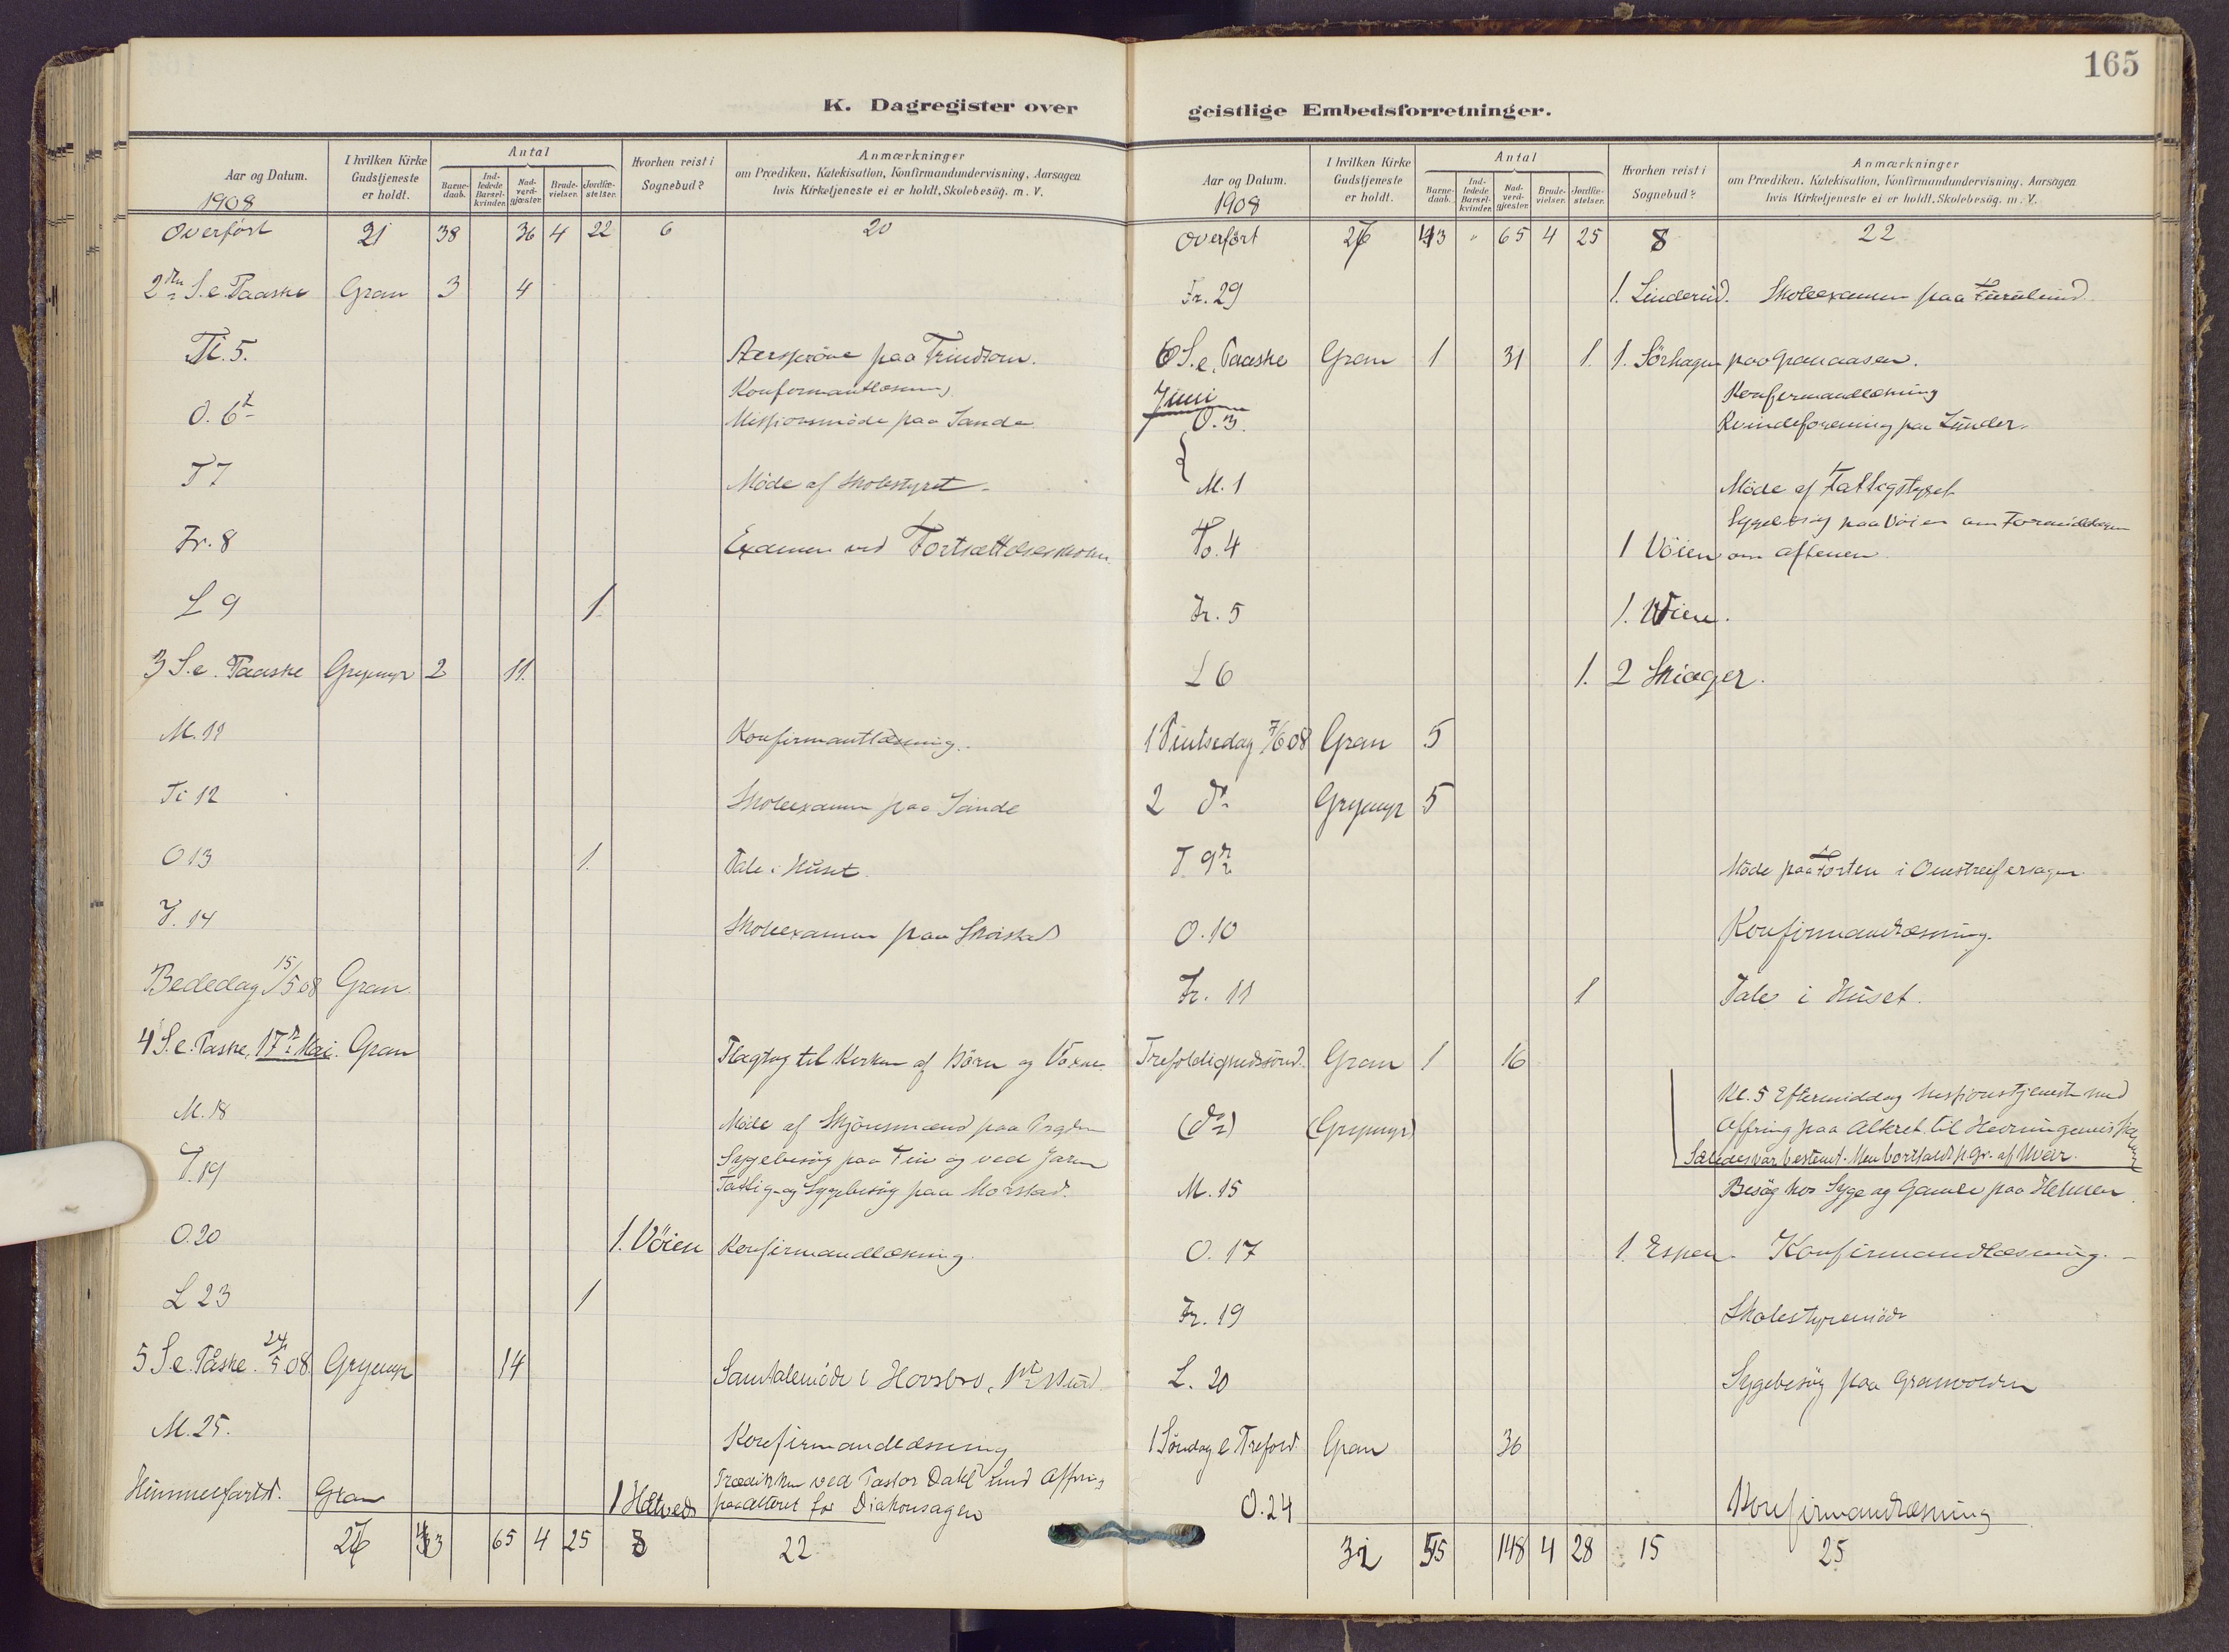 165
K. Dagregister over geistlige Embedsforretninger.
Aar og Datum.
1908
I hvilken Kirke Gudstjeneste er holdt.
Antal
Barne-daab.
Ind-ledede Barsel-kvinder.
Nad-verd-gjæster.
Brude-vielser.
Jordfæ-stelser.
Hvorhen reist i Sognebud?
Anmærkninger
om Prædiken, Katekisation, Konfirmandundervisning, Aarsagen
hvis Kirketjeneste ei er holdt, Skolebesög. m. V.
Overført 21 38 36 4 22 6 20
2den S. e. Paaske Gran 3 4
Ti. 5. paa Trintom.
Konfirmantlæsning
O. 6t Missionsmöde paa Sande
T 7 Möde af Skolestyret
Fr. 8 Examen ved Fortsættelsesskolen
L 9 1.
3 S. e. Paaske Grymyr 2 11.
M. 11 Konfirmantlæsning.
Ti 12 Skoleexamen paa Sande
O 13 1. Tale i Huset.
T. 14 Skoleexamen paa
Bededag 15/5 08 Gran.
4 S. e. Paske, 17de Mai. Gran Flagtog til Kirken af Börn og Voxne.
M. 18 Möde af Skjönsmænd paa
Sygebesög paa og ved Jaren
T. 19 Fattig- og Sygebesög paa Morstad.
O. 20 1. Vöien Konfirmandlæsning.
L 23 1
5 S. e. Påske. 24/5 08. Grymyr 14 Samtalemöde i Hovsbro,
M. 25. Konfirmandlæsning
Himmelfartsd. Gran 1 Hætved Prædiken ved Pastor Dahl med Offring
paa Alteret for Diakonsagen
26 43 65 4 25 8 22
Aar og Datum.
1908
I hvilken Kirke Gudstjeneste er holdt.
Antal
Barne-daab.
Ind-ledede Barsel-kvinder.
Nad-verd-gjæster.
Brude-vielser.
Jordfæ-stelser.
Hvorhen reist i Sognebud?
Anmærkninger
om Prædiken, Katekisation, Konfirmandundervisning, Aarsagen
hvis Kirketjeneste ei er holdt, Skolebesög. m. V.
Overført 26 43 " 65 4 25 8 22
Fr. 29 1. Linderud. Skoleexamen paa Furulund.
6 S. e. Paaske Gran 1 31 1. 1. Sörhagen paa Granaasen.
Juni Konfirmandlæsning
O. 3. Kvindeforening paa Lunder.
M. 1 Möde af Fattigstyret
Sygebesög paa Vöien om Formiddagen
To. 4 1 Vöien om Aftenen.
Fr. 5 1. Vöien.
L 6 1. 2 Skiager.
1 Pintsedag 7/6 08 Gran 5
2 do Grymyr 5
T. 9de Möde paa Torten i Omstreifersagen.
O. 10 Konfirmandlæsning.
Fr. 11 1 Tale i Huset.
Trefoldighedssönd. Gran 1 16
Kl. 5 Eftermiddag Missionstjeneste med
(do) (Grymyr) Offring paa Alteret til
Saaledes var bestemt. Men bortfaldt p. gr. af Uveir.
M. 15 Besög hos Syge og Gamle paa Helmen.
O. 17 1. Espen. Konfirmandlæsning.
Fr. 19 Skolestyremöde
L. 20 Sygebesög paa Granvolden
1 Söndag e Trefold. Gran 36
O. 24 Konfirmandlæsning
32 55 148 4 28 15 25